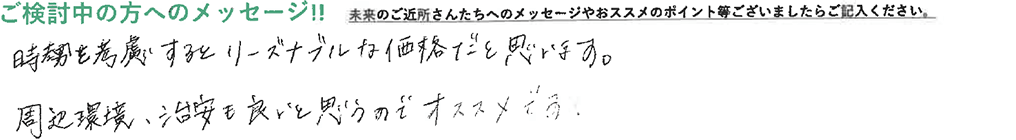 ご検討中の方へのメッセージ!! 未来のご近所さんたちへのメッセージやおススメのポイント等ございましたらご記入ください。
時勢を考慮するとリーズナブルな価格だと思います。
周辺環境、治安も良いと思うのでオススメです